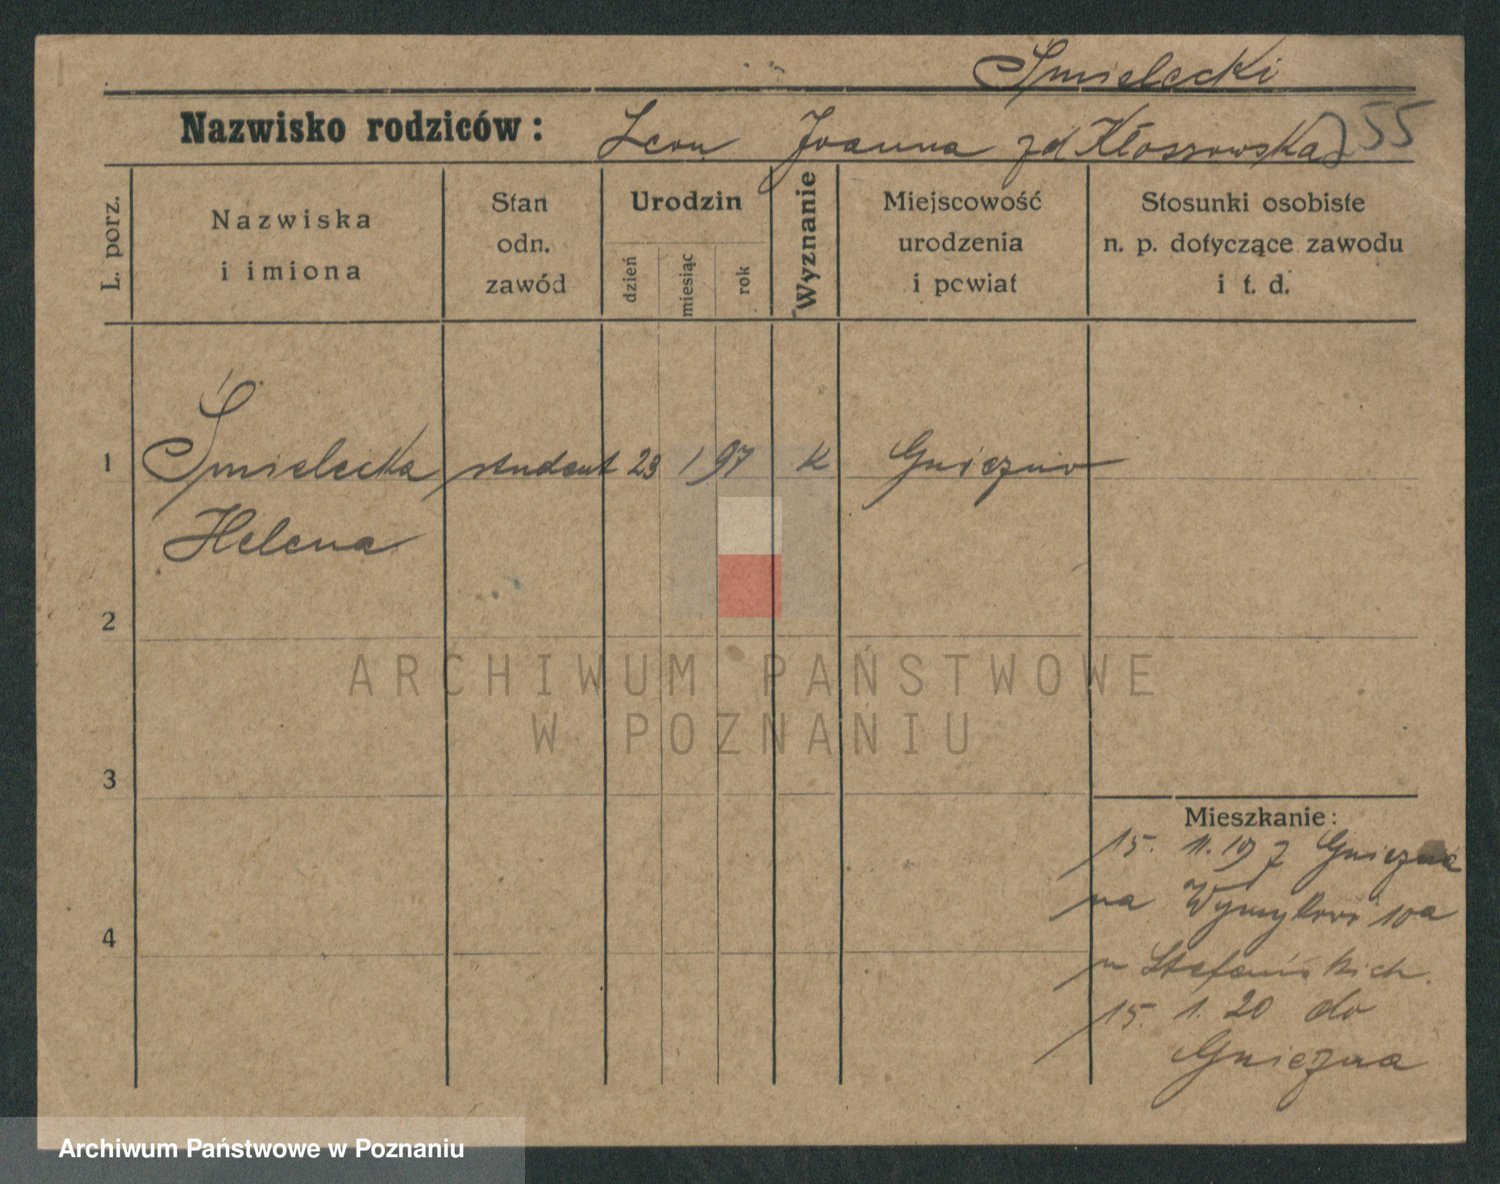 Śmielecki
Nazwisko rodziców: Leon Joanna zd Kłossowska 255
L. porz.
Nazwiska
i imiona
Stan
odn.
zawód
Urodzin
dzień
miesiąc
rok
Wyznanie
Miejscowość
urodzenia
i powiat
Stosunki osobiste
n. p. dotyczące zawodu
i t. d.
1 Śmielecka student 23 1 97 K Gniezno
Helena
2
3
4
Mieszkanie:
15. 11. 19 z Gniezna
na 10a
u Stefańskich.
15. 1. 20 do
Gniezna
ARCHIWUM PAŃSTWOWE
W POZNANIU
Archiwum Państwowe w Poznaniu